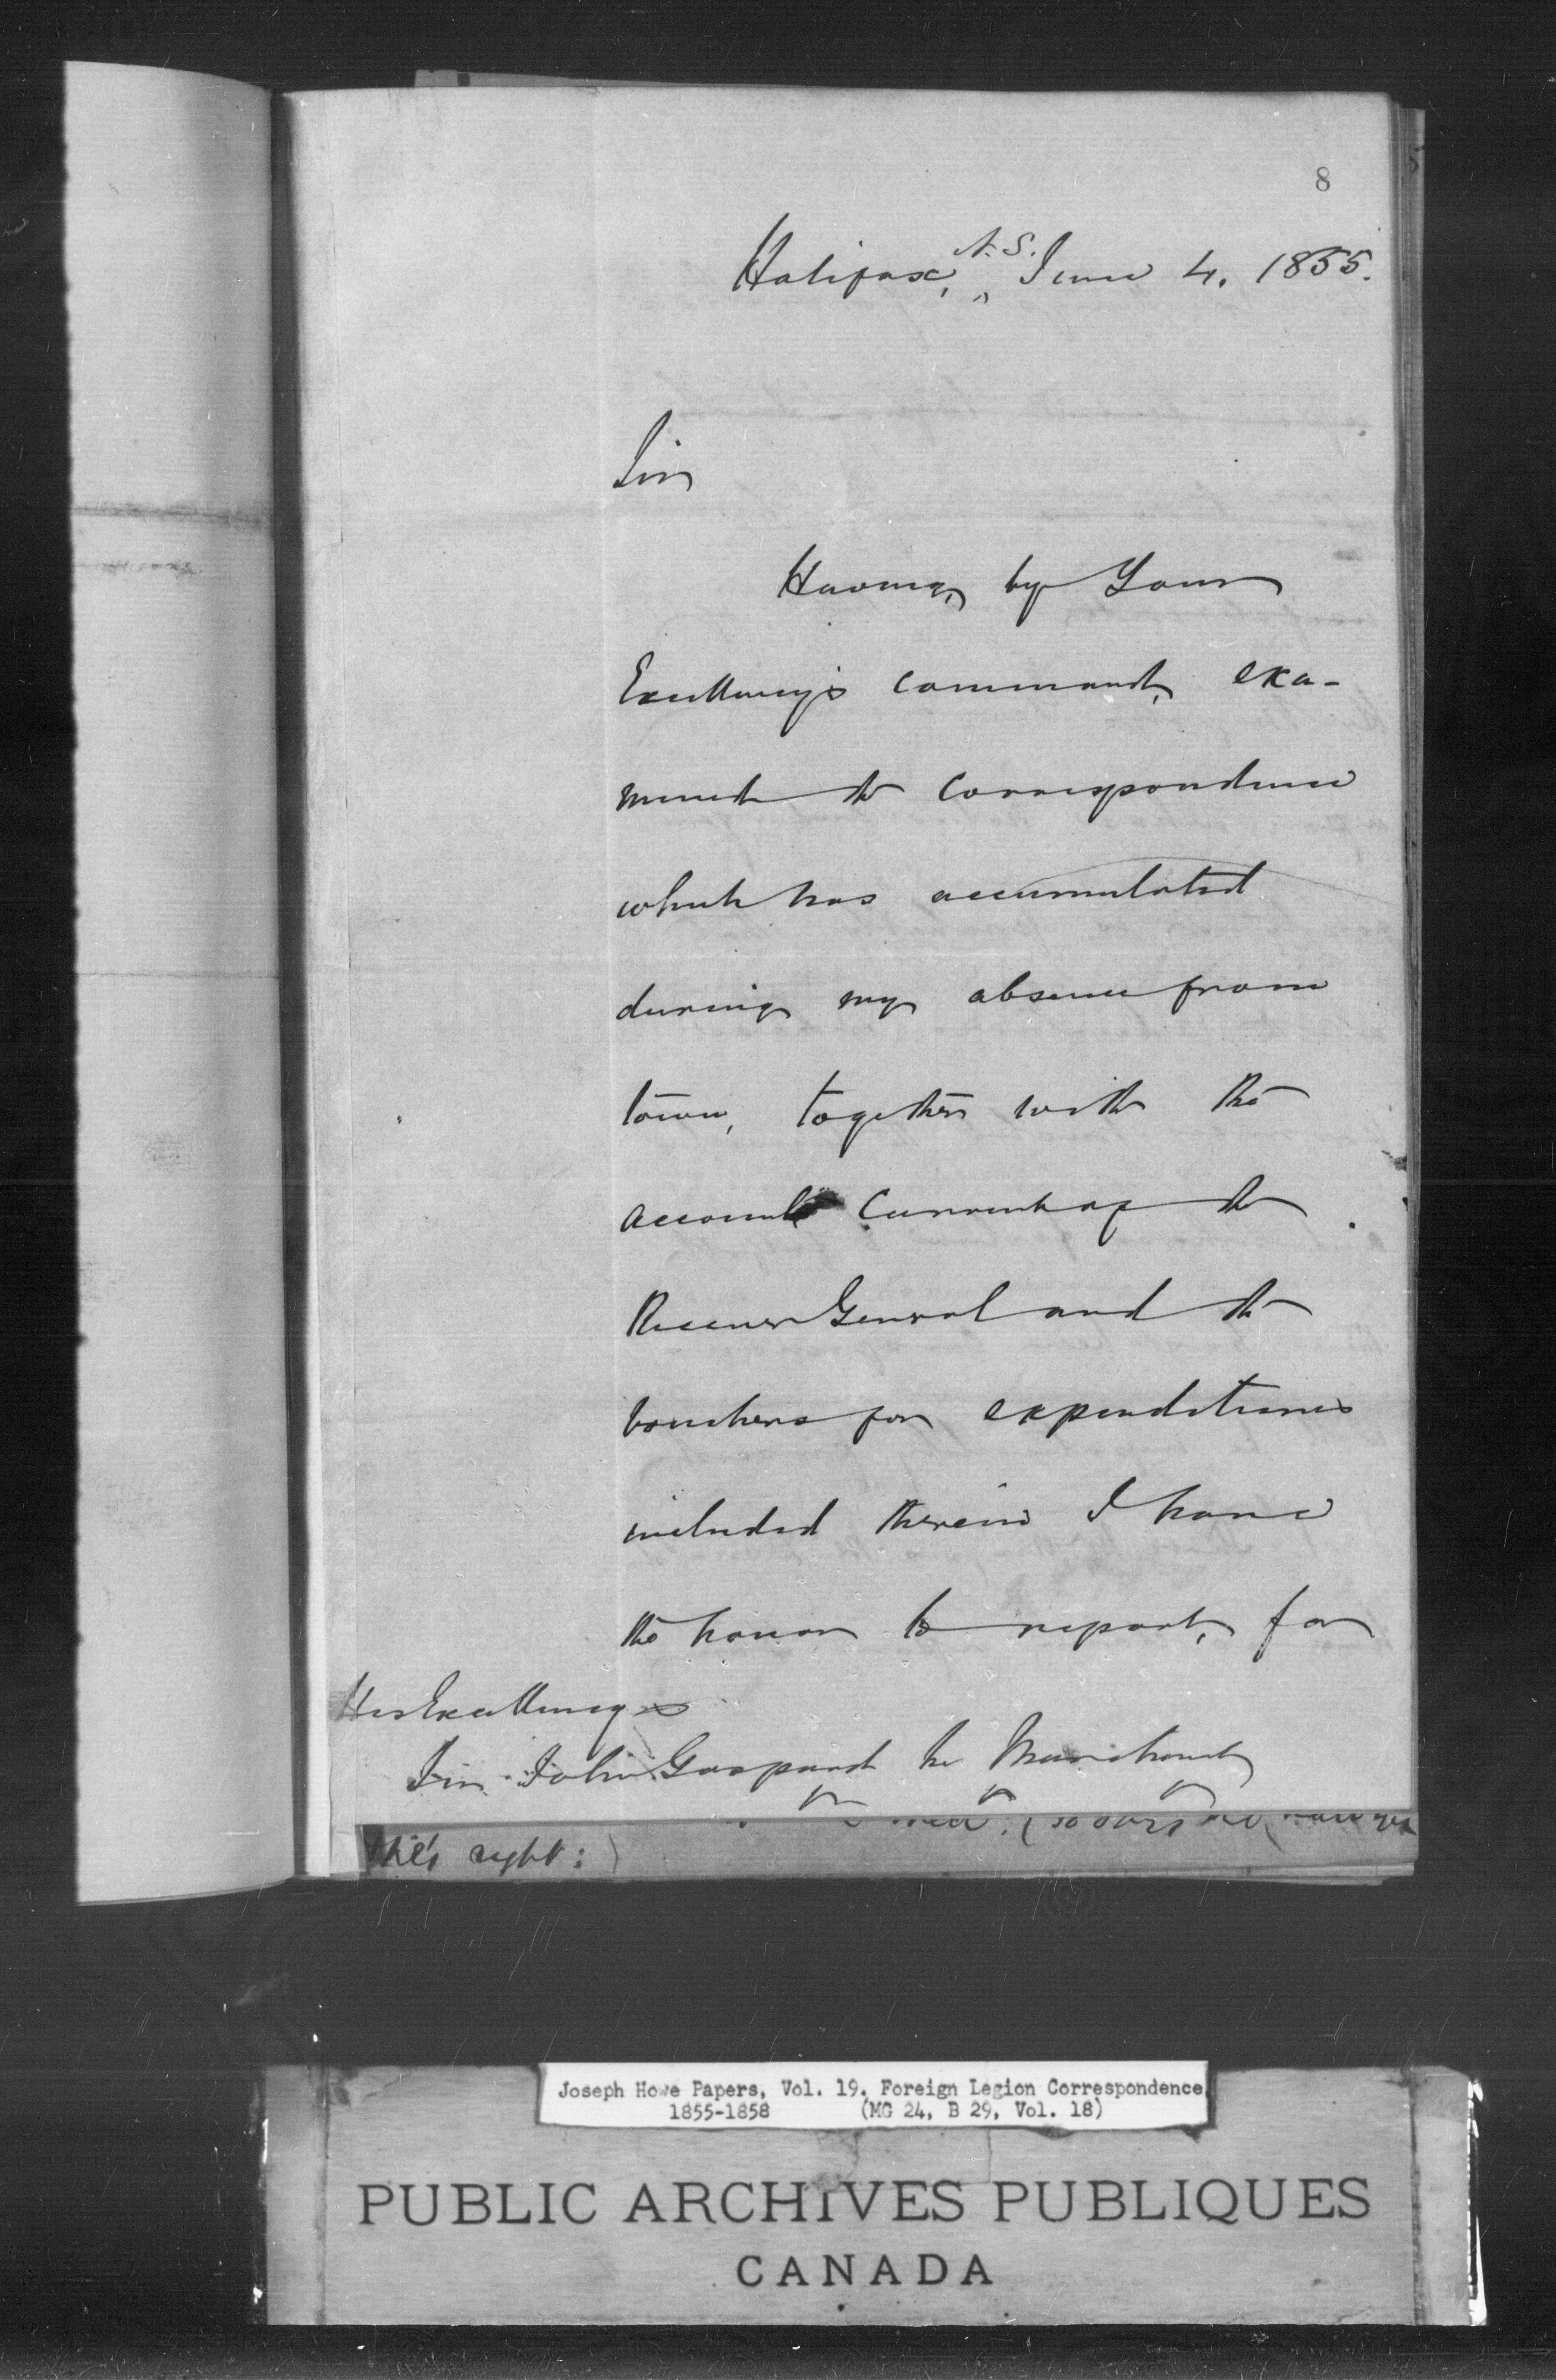 8
Halifax, N.S. June 4. 1855.
Sir
Having, by Your
Excellency's command, exa-
mined the correspondence
which has accumulated
during my absence from
town, together with the
account Current of the
Receiver General and the
vouchers for expenditures
included therein I have
the honor to report, for
His Excellency
Sir John Gaspard Le Marchant
right:
Joseph Howe Papers, Vol. 19. Foreign Legion Correspondence,
1855-1858 (MG 24, B 29, Vol. 18)
PUBLIC ARCHIVES PUBLIQUES
CANADA